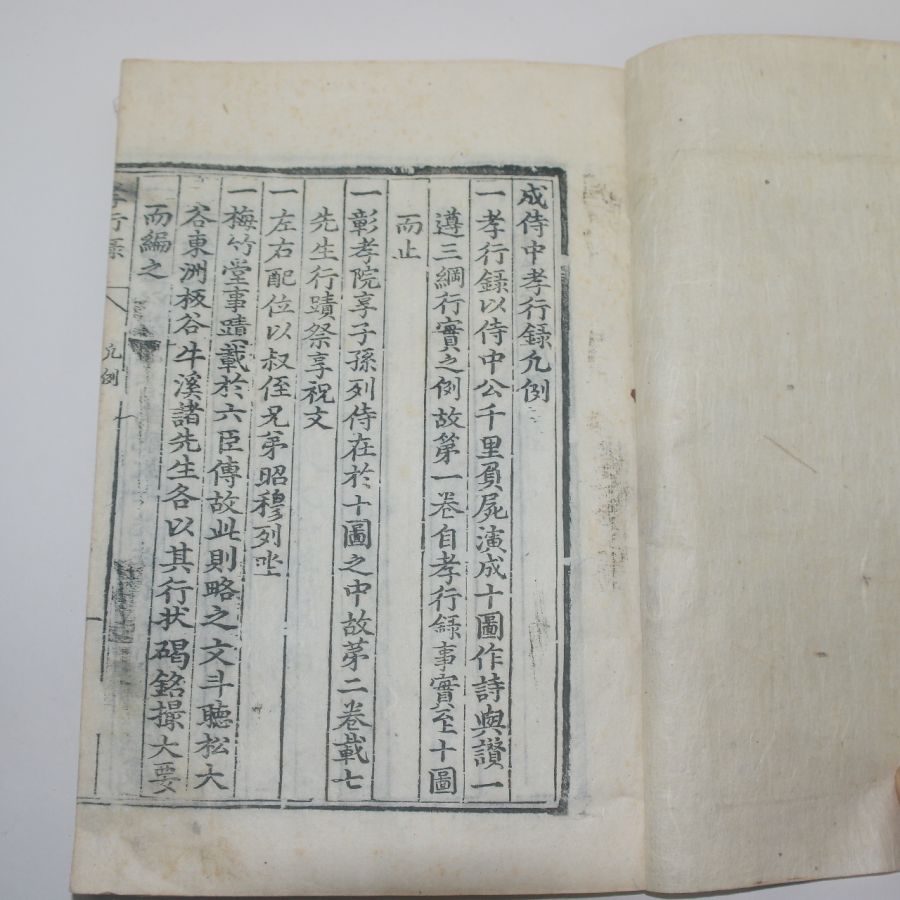 成侍中孝行録凡例
一孝行録以侍中公千里負屍演成十圖作詩與讚一
遵三綱行實之例故第一卷自孝行録事實至十圖
而止
一彰孝院享子孫列侍在於十圖之中故苐二卷載七
先生行蹟祭享祝文
一左右配位以叔侄兄弟昭穆列坐
一梅竹堂事蹟載於六臣傳故此則略之文斗聽松大
谷東洲板谷牛溪諸先生各以其行状碣銘撮大要
而編之
孝行録
凡例